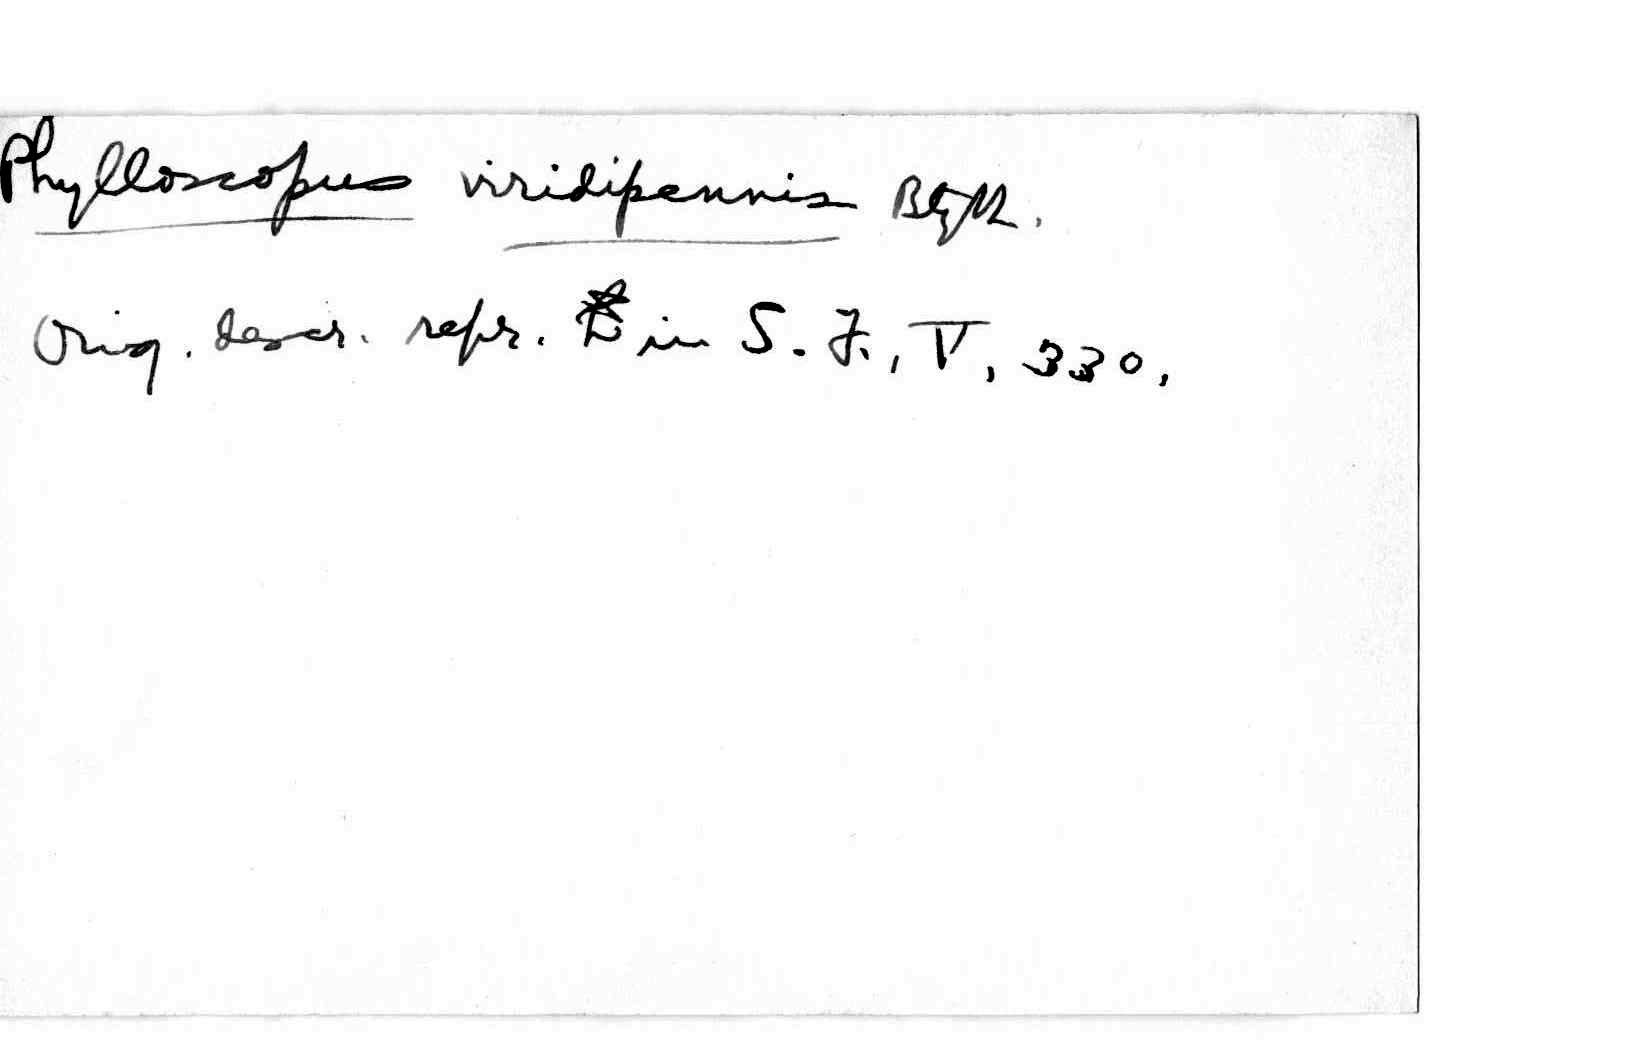 Phylloscopus viridipennis Blyth.
Orig. descr. repr. in S. F., V, 330,